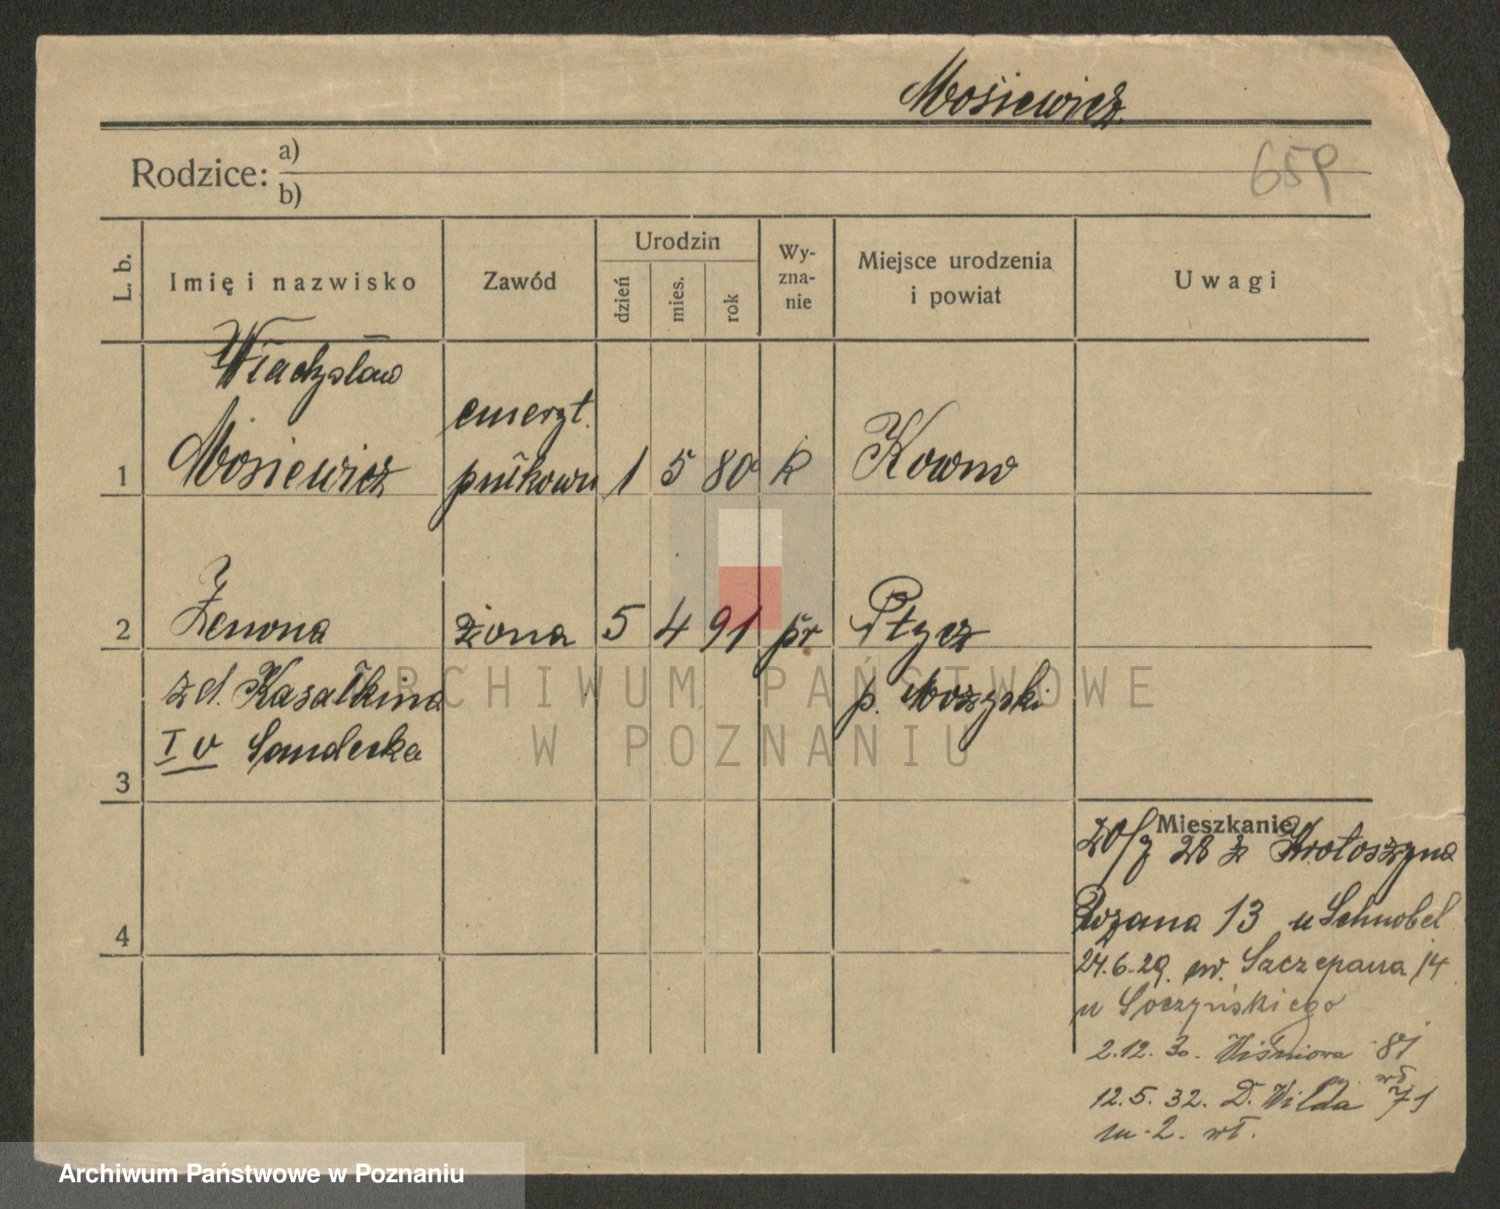 Mosiewicz
Rodzice: a)
b)
65P
L. b.
Imię i nazwisko
Zawód
Urodzin
dzień
mies.
rok
Wy-
zna-
nie
Miejsce urodzenia
i powiat
Uwagi
Władysław
emeryt.
1 Mosiewicz pułkown 1 5 80 k Kowno
2 Zenona żona 5 4 91 pr Ptycz
zd. Kasałkina p. Mozyrski
I v Sandecka
3
Mieszkanie
20/7 28 z Krotoszyna
Różana 13 u Schnobel
4
24.6.29. św. Szczepana 14
u Soczyńskiego
2.12.30. Wiśniowa 81
12.5.32. D. Wilda 71
m. 2. wł.
ARCHIWUM PAŃSTWOWE
W POZNANIU
Archiwum Państwowe w Poznaniu